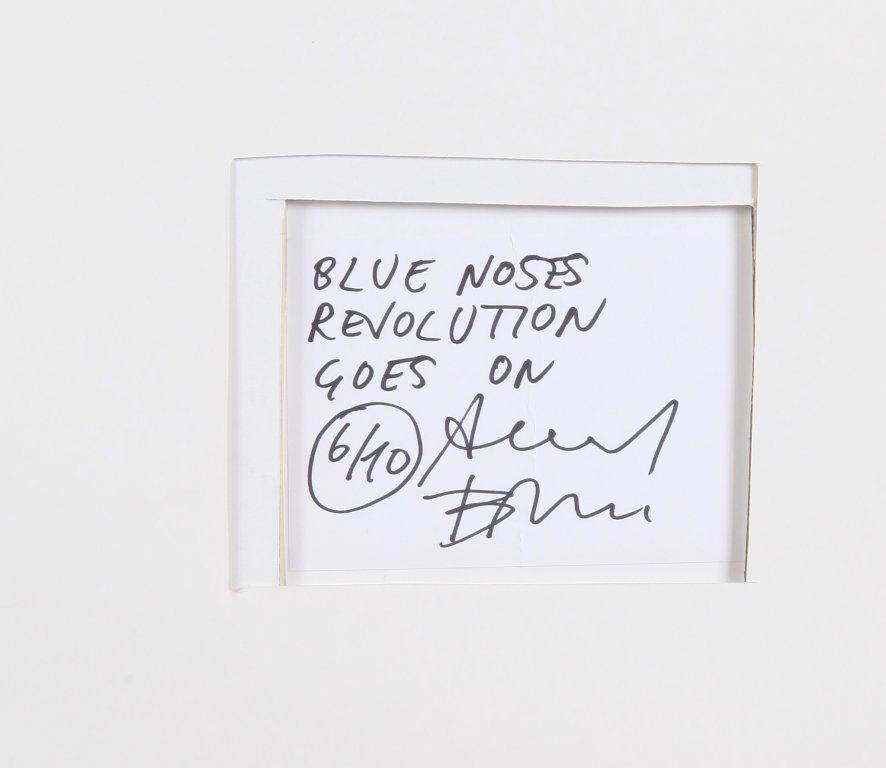 BLUE NOSES
REVOLUTION
GOES ON
6/10